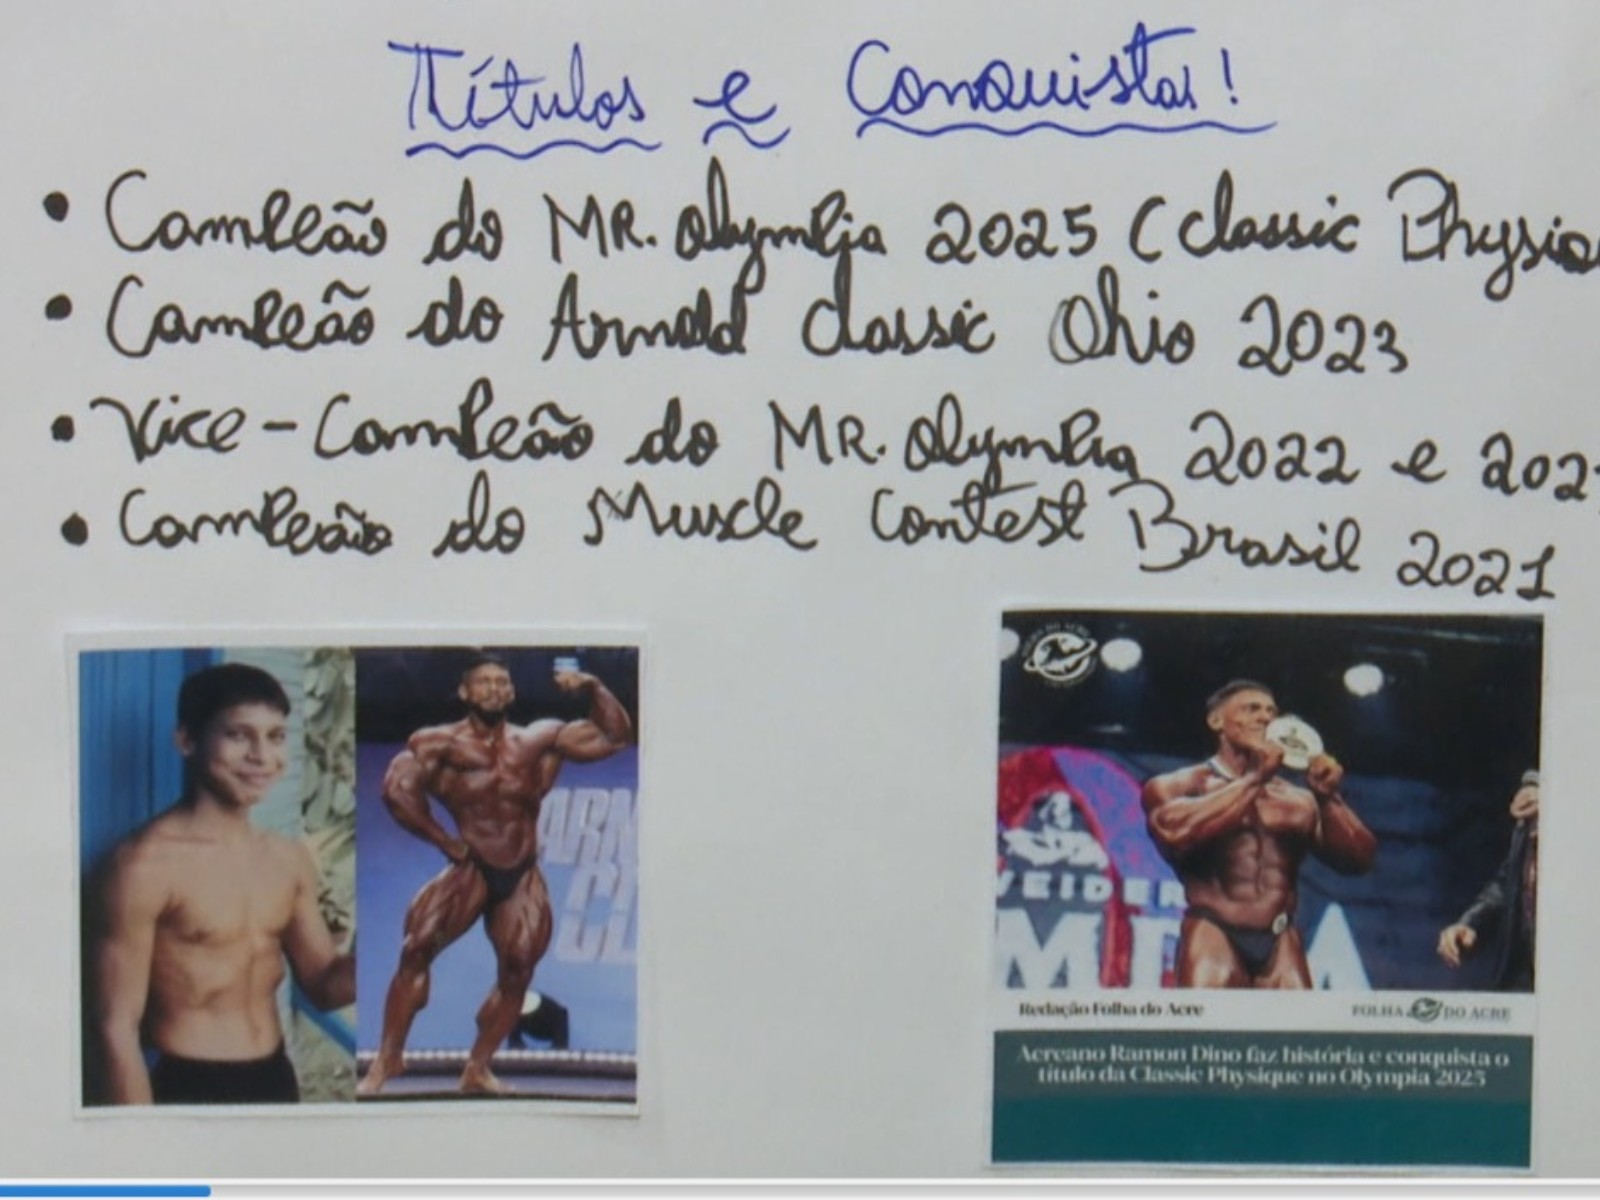 Títulos e Conquistas!
• Campeão do MR. Olympia 2025 (Classic Physiqu
• Campeão do Arnold Classic Ohio 2023
• Vice-Campeão do MR. Olympia 2022 e 202
• Campeão do Muscle Contest Brasil 2021
ARN
CL
FOLHA DO ACRE
WEIDER
MP A
Redação Folha do Acre
FOLHA DO ACRE
Acreano Ramon Dino faz história e conquista o
título da Classic Physique no Olympia 2025